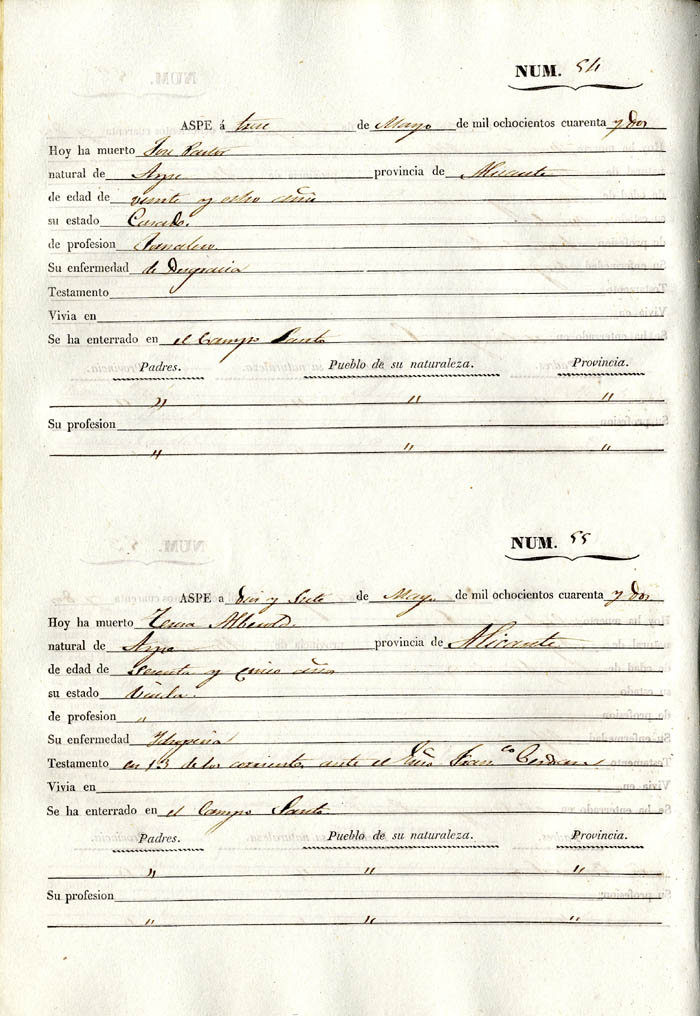 NUM. 54
ASPE á trece de Mayo de mil ochocientos cuarenta y dos
Hoy ha muerto Jose Pastor
natural de Aspe provincia de Alicante
de edad de veinte y ocho años
su estado Casado.
de profesion Jornalero
Su enfermedad de Desgracia
Testamento
Vivia en
Se ha enterrado en el Campo Santo
Padres. Pueblo de su naturaleza. Provincia.
" " "
Su profesion
" " "
NUM. 55
ASPE a diez y siete de Mayo de mil ochocientos cuarenta y dos
Hoy ha muerto Teresa
natural de Aspe provincia de Alicante
de edad de sesenta y cinco años
su estado Viuda.
de profesion "
Su enfermedad Idropesia
Testamento en 13 de los corrientes ante el Esño Franco Cerdan
Vivia en
Se ha enterrado en el Campo Santo
Padres. Pueblo de su naturaleza. Provincia.
" " "
Su profesion
" " "